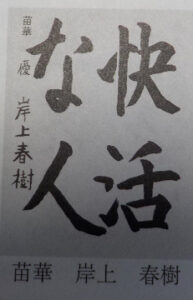 快活
な人
苗華 優 岸上春樹
苗華 岸上 春樹